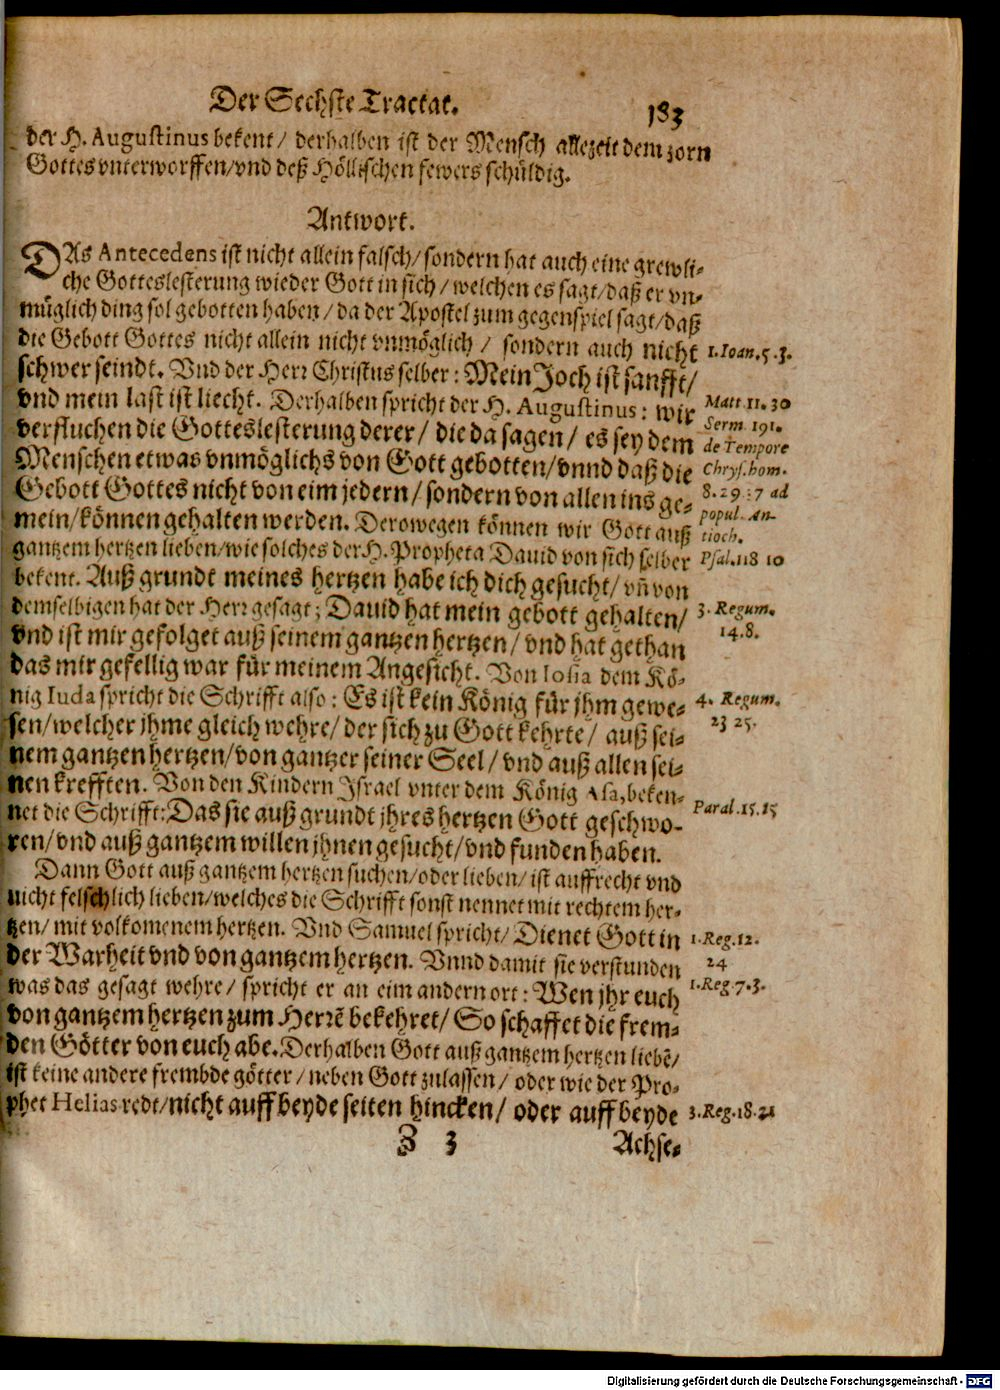 Der Sechste Tractat.
183
der H. Augustinus bekent/ derhalben ist der Mensch allezeit dem zorn
Gottes vnterworffen/vnd deß Höllischen fewers schüldig.
Antwort.
DAs Antecedens ist nicht allein falsch/sondern hat auch eine grewli-
che Gotteslesterung wieder Gott in sich/welchen es sagt/daß er vn-
müglich ding sol gebotten haben/da der Apostel zum gegenspiel sagt/daß
die Gebott Gottes nicht allein nicht vnmöglich/ sondern auch nicht
1. Ioan. 5. 3.
schwer seindt. Vnd der Herr Christus selber: Mein Joch ist sanfft/
vnd mein last ist liecht. Derhalben spricht der H. Augustinus: wir
Matt 11. 30
verfluchen die Gotteslesterung derer/ die da sagen/ es sey dem
Serm 191.
de Tempore
Menschen etwas vnmöglichs von Gott gebotten/vnnd daß die
Chrys. hom.
Gebott Gottes nicht von eim jedern/sondern von allen ins ge-
8. 29 : 7 ad
mein/können gehalten werden. Derowegen können wir Gott auß
popul. An-
tioch.
gantzem hertzen lieben/wie solches der H. Propheta Dauid von sich selber
Psal. 118 10
bekent. Auß grundt meines hertzen habe ich dich gesucht/ vñ von
demselbigen hat der Herr gesagt; Dauid hat mein gebott gehalten/
3. Regum.
14. 8.
vnd ist mir gefolget auß seinem gantzen hertzen/ vnd hat gethan
das mir gefellig war für meinem Angesicht. Von Iosia dem Kö-
nig Iuda spricht die Schrifft also: Es ist kein König für jhm gewe-
4. Regum.
23 25.
sen/welcher jhme gleich wehre/ der sich zu Gott kehrte/ auß sei-
nem gantzen hertzen/von gantzer seiner Seel/ vnd auß allen sei-
nen krefften. Von den Kindern Israel vnter dem König Asa, beken-
net die Schrifft: Das sie auß grundt jhres hertzen Gott geschwo-
Paral. 15. 15
ren/vnd auß gantzem willen jhnen gesucht/vnd funden haben.
Dann Gott auß gantzem hertzen suchen/oder lieben/ ist auffrecht vnd
nicht felschlich lieben/welches die Schrifft sonst nennet mit rechtem her-
tzen/ mit volkomenem hertzen. Vnd Samuel spricht/ Dienet Gott in
1. Reg. 12.
24
der Warheit vnd von gantzem hertzen. Vnnd damit sie verstunden
was das gesagt wehre/ spricht er an eim andern ort: Wen jhr euch
1. Reg 7. 3.
von gantzem hertzen zum Herrē bekehret/ So schaffet die frem-
den Götter von euch abe. Derhalben Gott auß gantzem hertzen liebē/
ist keine andere frembde götter/neben Gott zulassen/ oder wie der Pro-
phet Helias redt/nicht auff beyde seiten hincken/ oder auff beyde
3. Reg. 18. 21
Z 3
Achse-
Digitalisierung gefördert durch die Deutsche Forschungsgemeinschaft - DFG